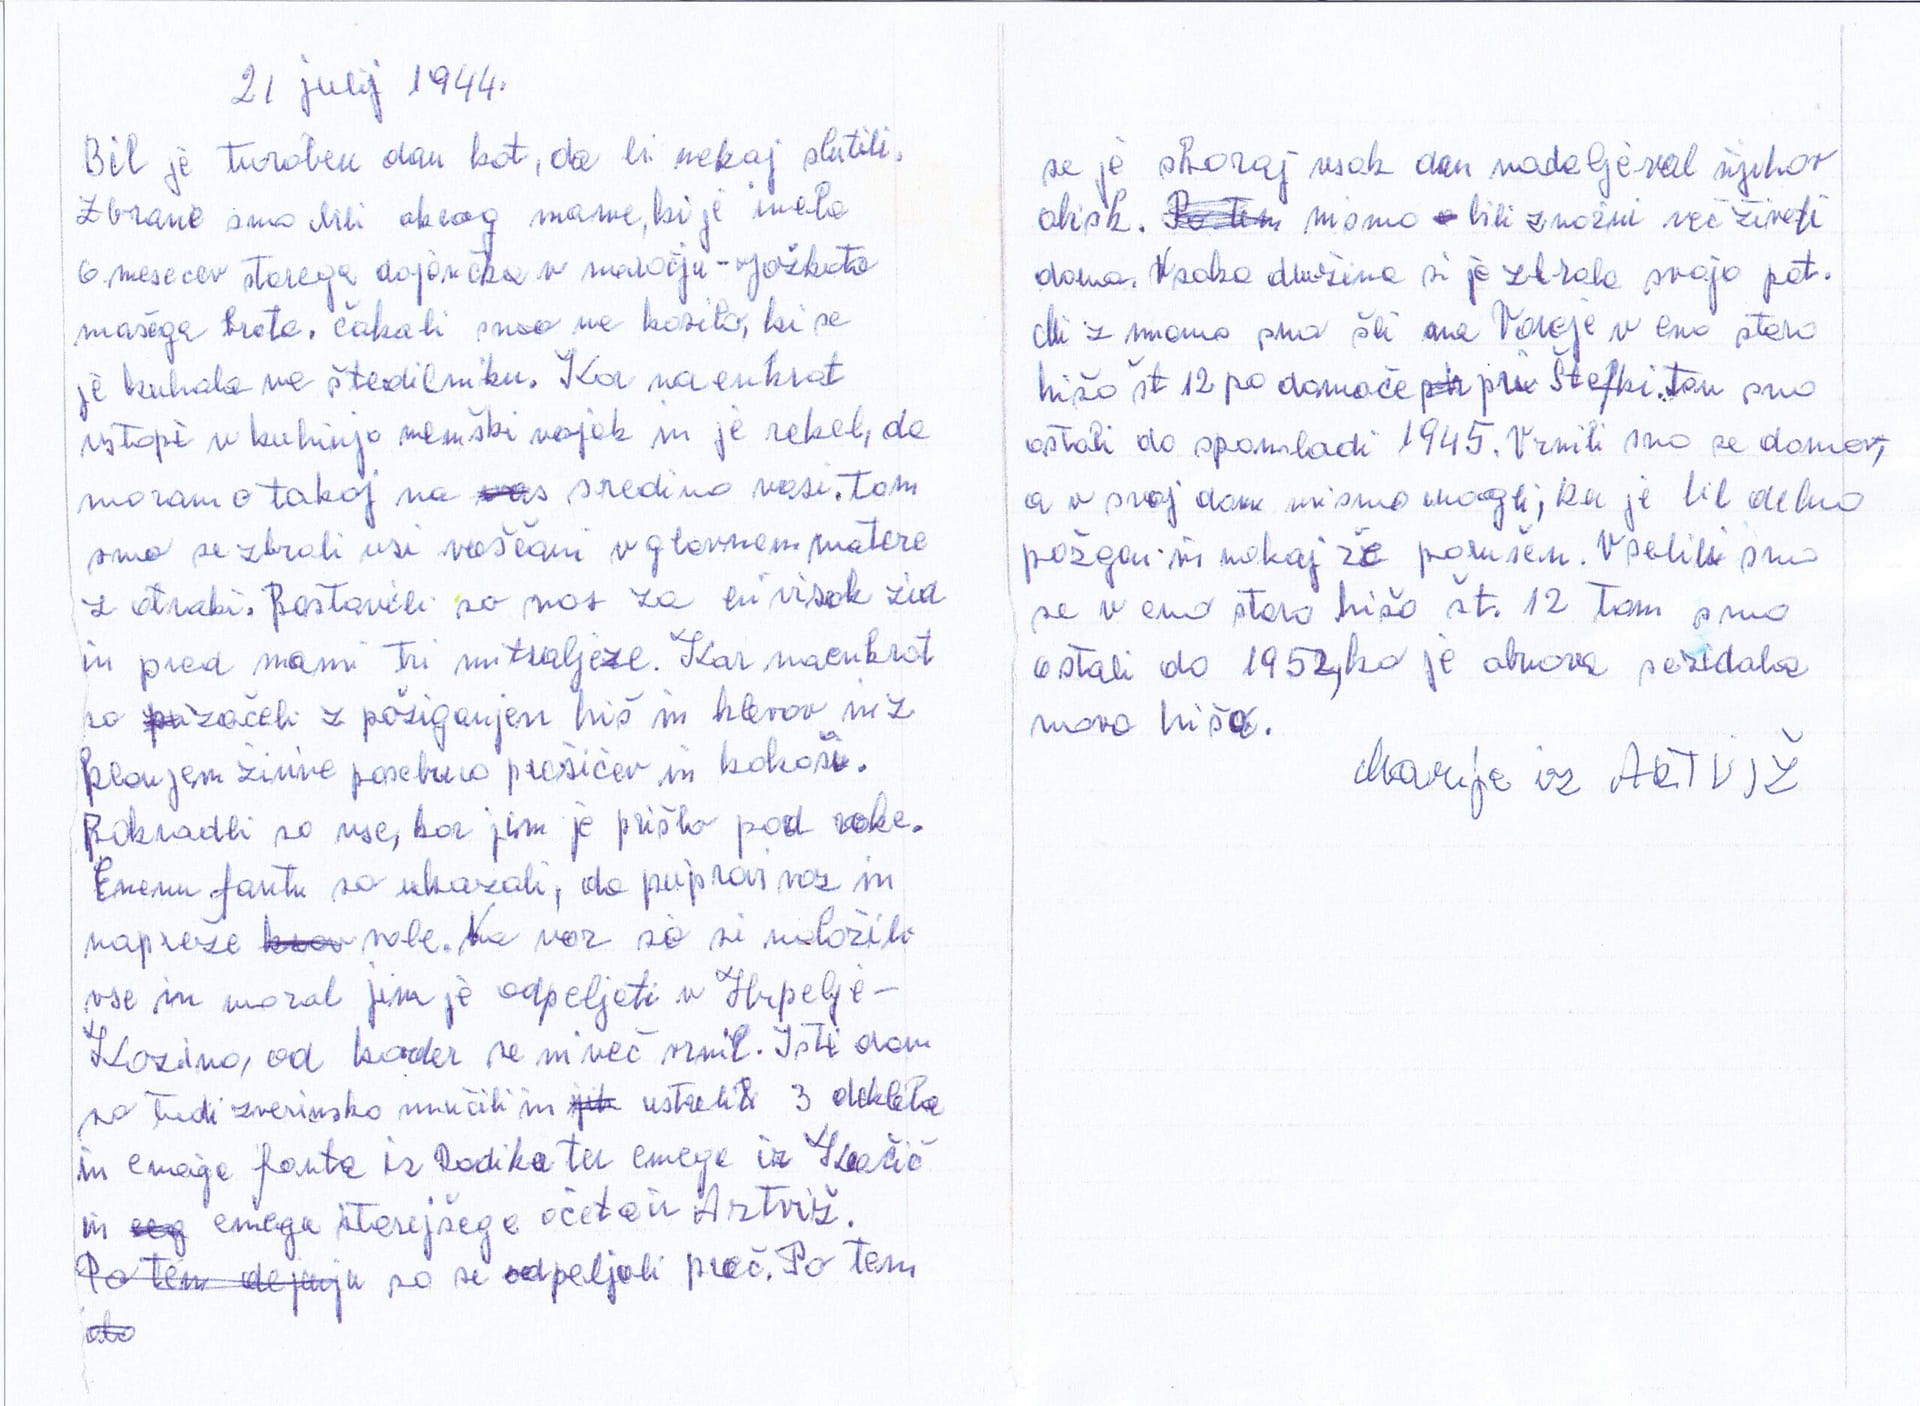 21 julij 1944.
Bil je turoben dan kot, da bi nekaj slutili.
Zbrane smo bili okrog mame, ki je imela
6 mesecev starega dojenčka v naročju - Jožkota
našega brata. Čakali smo na kosilo, ki se
je kuhalo na štedilniku. Kar naenkrat
vstopi v kuhinjo nemški vojak in je rekel, da
moramo takoj na vas sredino vasi. Tam
smo se zbrali vsi vaščani v glavnem matere
z otroki. Postavili so nas za en visok zid
in pred nami tri mitraljeze. Kar naenkrat
so pri začeli z požiganjem hiš in hlevov in z
klanjem živine posebno prašičev in kokoši.
Pokradli so vse, kar jim je prišlo pod roke.
Enemu fantu so ukazali, da pripravi voz in
napreže krav vole. Na voz so si naložili
vse in moral jim je odpeljati v Hrpelje-
Kozino, od koder se ni več vrnil. Isti dan
so tudi zverinsko mučili in jih ustrelili 3 dekleta
in enega fanta iz Rodika ter enega iz Kačič
in enega starejšega očeta iz Artviž.
Po tem dejanju so se odpeljali proč. Po tem
se je skoraj vsak dan nadaljeval njihov
obisk. Po tem nismo bili zmožni več živeti
doma. Vsaka družina si je zbrala svojo pot.
Mi z mamo smo šli na Vareje v eno staro
hišo št 12 po domače pri Štefki. Tam smo
ostali do spomladi 1945. Vrnili smo se domov,
a v svoj dom nismo mogli, ker je bil delno
požgan in nekaj že porušen. Vselili smo
se v eno staro hišo št. 12 Tam smo
ostali do 1952, ko je obnova sezidala
novo hišo.
Marija iz ARTVIŽ